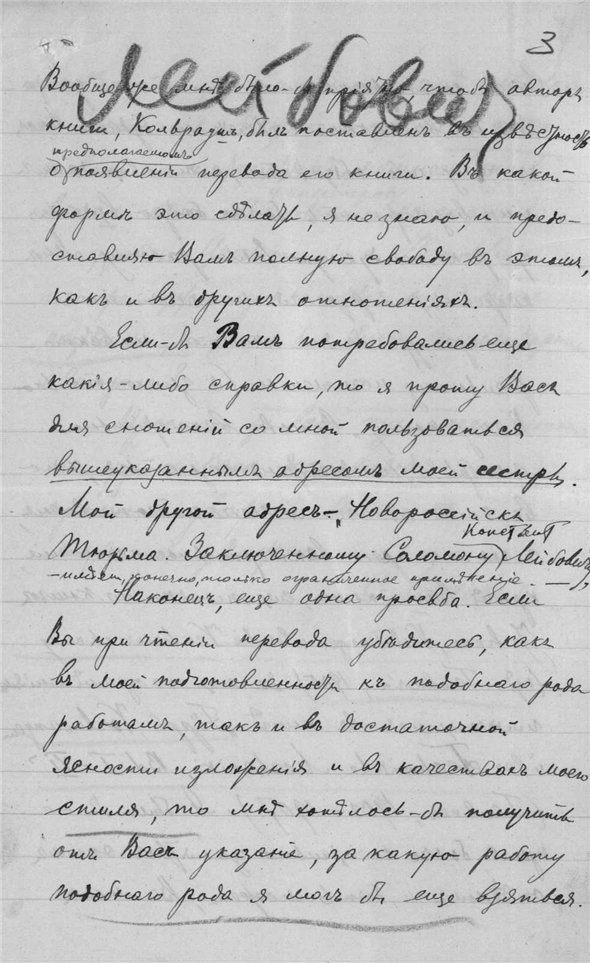 3
Лейбович
Вообще же мнѣ было-бы пріятно, чтобъ авторъ
книги, Кольраушъ, былъ поставленъ въ извѣстность
предполагаемомъ
о появленіи перевода его книги. Въ какой
формѣ это сдѣлать, я не знаю, и предо-
ставляю Вамъ полную свободу въ этомъ,
какъ и въ другихъ отношеніяхъ.
Если-бъ Вамъ потребовались еще
какія-либо справки, то я прошу Васъ
для сношеній со мной пользоваться
вышеуказаннымъ адресомъ моей сестры.
Мой другой адресъ – „Новороссійскъ
Тюрьма. Заключенному Соломону Лейбовичъ
имѣетъ, конечно, только ограниченное примѣненіе.
Наконецъ, еще одна просьба. Если
Вы при чтеніи перевода убѣдитесь, какъ
въ моей подготовленности къ подобнаго рода
работамъ, такъ и въ достаточной
ясности изложенія и въ качествахъ моего
стиля, то мнѣ хотѣлось-бъ получить
отъ Васъ указаніе, за какую работу
подобнаго рода я могъ бы еще взяться.